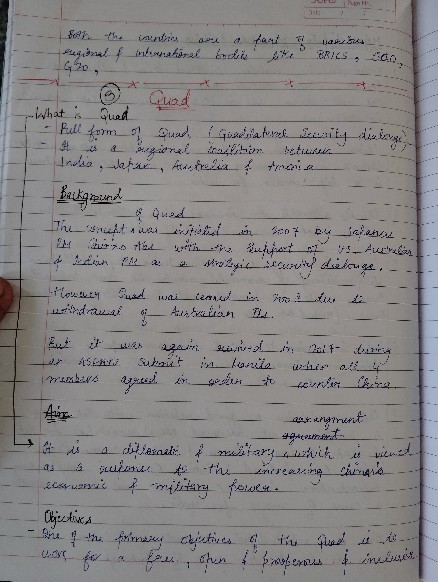 Both the countries are a part of various
regional & international bodies like BRICS, SCO,
G20,
③ Quad
What is Quad
- Full form of Quad (Quadrilateral Security dialouge)
- It is a regional coalition between
India, Japan, Australia & America
Background
of Quad
The concept was initiated in 2007 by Japanese
PM Shinzo Abe with the support of US, Australian
& Indian PM as a strategic security dialouge.
However Quad was ceased in 2008 due to
withdrawal of Australian PM.
But it was again revived in 2017 during
an ASEAN submit in Manila when all 4
members agreed in order to counter China.
Aim
arrangment
agreement
It is a diplomatic & military, which is viewed
as a response to the increasing China's
economic & military power.
Objectives
- One of the primary objectives of the Quad is to
work for a free, open & prosperous & inclusive